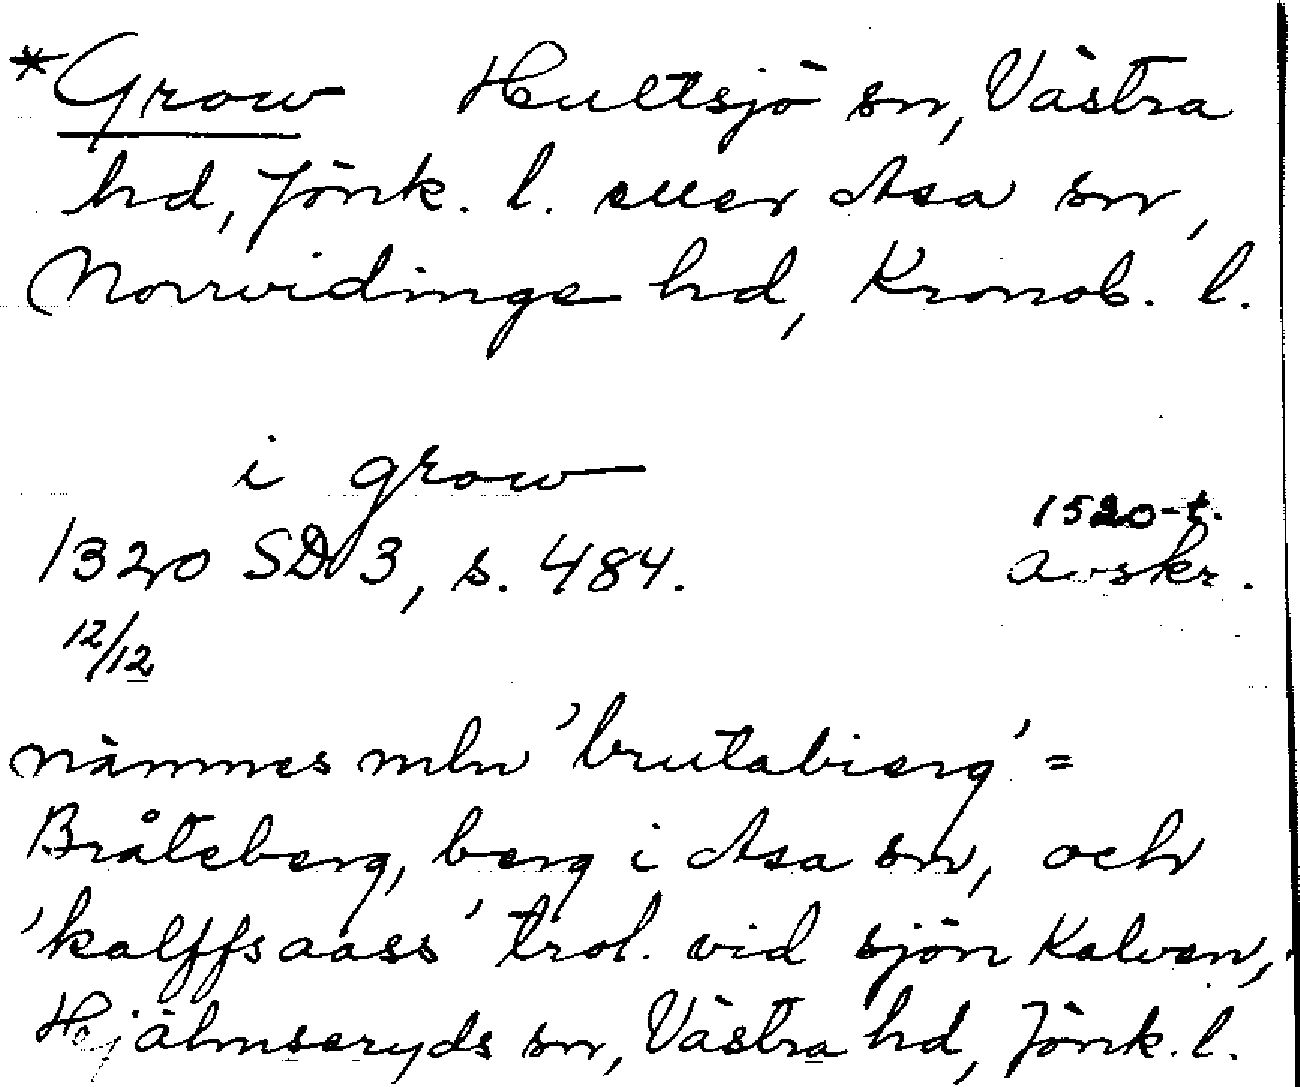 *Grow Hultsjö sn, Västra
hd, Jönk. l. eller Asa sn,
Norrvidinge hd, Kronob. l.
i grow
1320 SD 3, s. 484. 1520-t. avskr.
12/12
nämnes mln 'brutabierg' =
Bråteberg, berg i Asa sn, och
'kalffsaass' trol. vid sjön Kalven,
Hjälmseryds sn, Västra hd, Jönk. l.